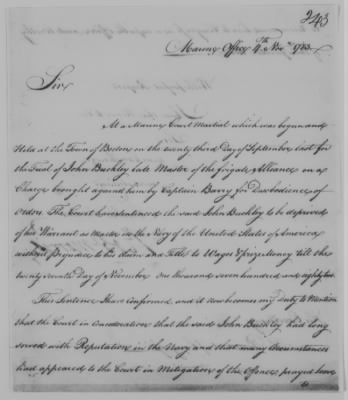 243
Marine Office 4th Novr 1783.
Sir
At a Marine Court Martial which was begun and
Held at the Town of Boston on the twenty third Day of September last for
the Trial of John Buckley late Master of the frigate Alliance on a
Charge brought against him by Captain Barry for Disobedience of
orders. The Court have sentenced the said John Buckley to be deprived
of his Warrant as Master in the Navy of the United States of America
without Prejudice to his claim and Title to Wages & prizemoney till the
twenty seventh Day of November one thousand seven hundred and eighty two
This Sentence I have confirmed, and it now becomes my Duty to Mention
that the Court in Consideration that the said John Buckley had long
served with Reputation in the Navy and that many Circumstances
had appeared to the Court in Mitigation of the Offence prayed leave
to